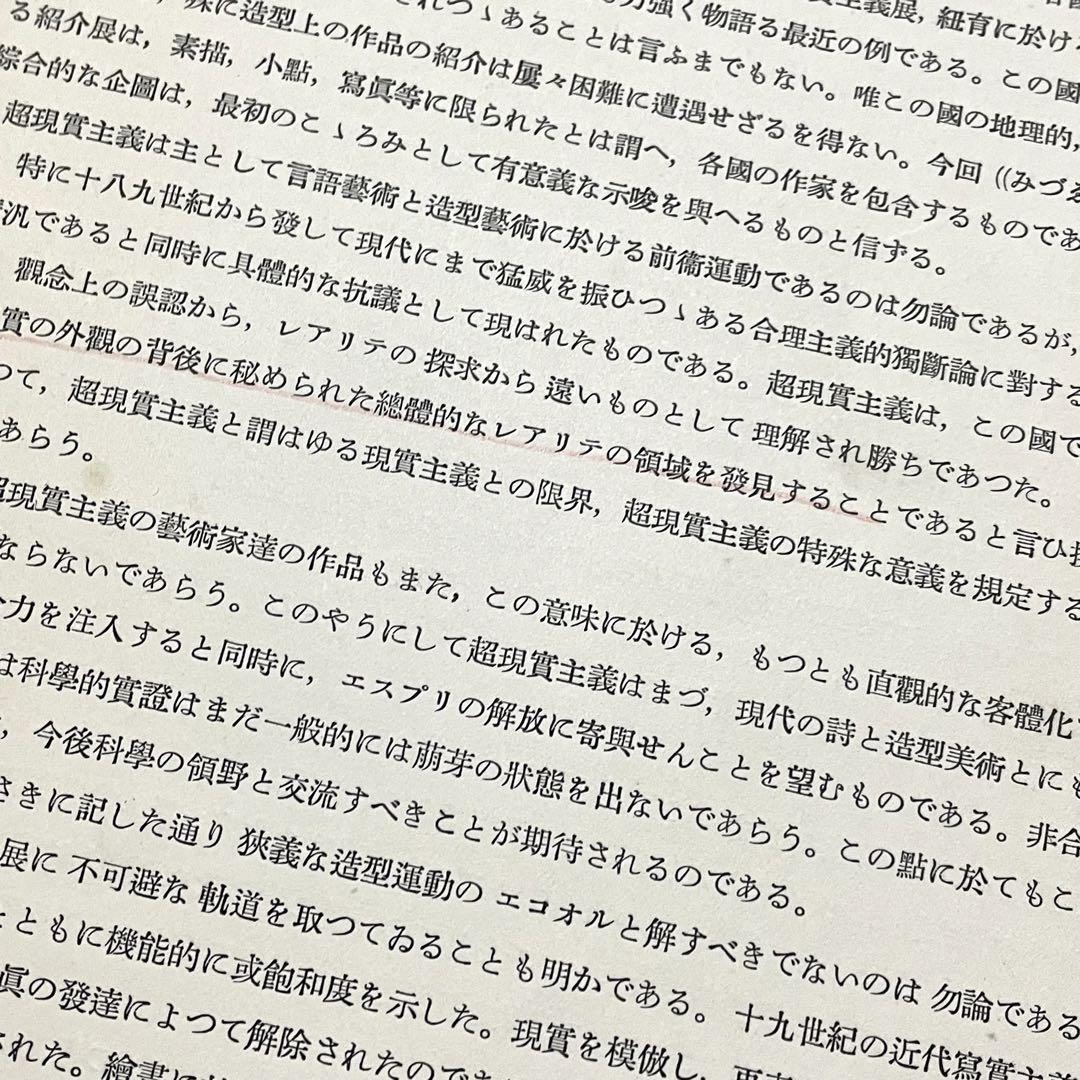 主義展, 紐育に於け
強く物語る最近の例である。この國
つゝあることは言ふまでもない。唯この國の地理的,
殊に造型上の作品の紹介は屢々困難に遭遇せざるを得ない。今回((みづゑ
る紹介展は, 素描, 小點, 寫眞等に限られたとは謂へ, 各國の作家を包含するものであ
綜合的な企圖は, 最初のこゝろみとして有意義な示唆を與へるものと信ずる。
超現實主義は主として言語藝術と造型藝術に於ける前衞運動であるのは勿論であるが,
特に十八九世紀から發して現代にまで猛威を振ひつゝある合理主義的獨斷論に對する
況であると同時に具體的な抗議として現はれたものである。超現實主義は, この國で
觀念上の誤認から, レアリテの探求から遠いものとして理解され勝ちであつた。
實の外觀の背後に秘められた總體的なレアリテの領域を發見することであると言ひ
つて, 超現實主義と謂はゆる現實主義との限界, 超現實主義の特殊な意義を規定する
あらう。
超現實主義の藝術家達の作品もまた, この意味に於ける, もつとも直觀的な客體化
ならないであらう。このやうにして超現實主義はまづ, 現代の詩と造型美術とにも
力を注入すると同時に, エスプリの解放に寄與せんことを望むものである。非合
は科學的實證はまだ一般的には萠芽の狀態を出ないであらう。この點に於てもこ
, 今後科學の領野と交流すべきことが期待されるのである。
さきに記した通り狹義な造型運動のエコオルと解すべきでないのは勿論である
展に不可避な軌道を取つてゐることも明かである。十九世紀の近代寫實主義
ともに機能的に或飽和度を示した。現實を模倣し,
眞の發達によつて解除されたので
された。繪畫に